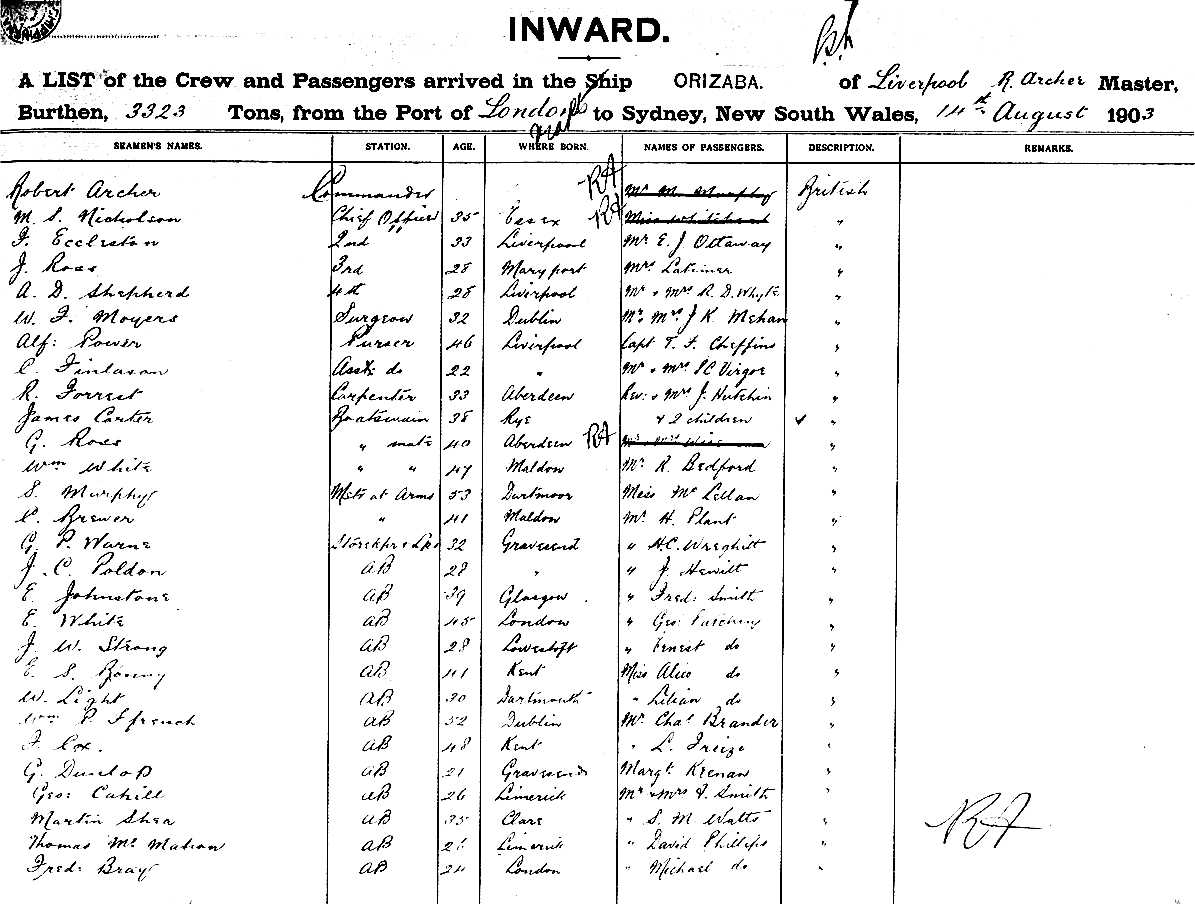 INWARD.
A LIST of the Crew and Passengers arrived in the Ship ORIZABA. of Liverpool R. Archer Master,
Burthen, 3323 Tons, from the Port of London to Sydney, New South Wales, 14th August 1903
SEAMEN'S NAMES. STATION. AGE. WHERE BORN. NAMES OF PASSENGERS. DESCRIPTION. REMARKS.
Robert Archer Commander RA Mr M. Murphy British
M. S. Nicholson Chief Officer 35 Essex RA Miss "
F. Eccleston 2nd " 33 Liverpool Mr E. J. Ottaway "
J. Ross 3rd 28 Maryport Mrs Latimer "
A. D. Shepherd 4th 28 Liverpool Mr & Mrs R. D. Whyte "
W. F. Moyers Surgeon 32 Dublin Mr Mrs J K Mehan "
Alf: Power Purser 46 Liverpool Capt T. F. Cheffins "
C. Finlason Asst do 22 " Mr & Mrs Virgoe "
R. Forrest Carpenter 33 Aberdeen Rev: & Mrs J. Hutchin "
James Carter Boatswain 38 Rye & 2 children "
G. Ross " mate 40 Aberdeen RA "
Wm White " " 47 Maldon Mr R. Bedford "
S. Murphy Mstr at Arms 53 Dartmoor Miss McLellan "
C. Brewer " 41 Maldon Mr H. Plant "
G. P. Warne 32 Gravesend " H.C. Wreghitt "
J. C. Poldon AB 28 " " J Hewitt "
E. Johnstone AB 39 Glasgow " Fred: Smith "
E. White AB 45 London " Geo: "
J. W. Strong AB 28 Lowestoft " Ernest do "
E. S. AB 41 Kent Miss Alice do "
W. Light AB 30 Dartmouth " Lilian do "
Wm P. Ffrench AB 52 Dublin Mr Chas Brander "
F. Cox. AB 48 Kent " L. Treize "
G. Dunlop AB 21 Gravesend Margt Keenan "
Geo: Cahill AB 26 Limerick Mr & Mrs F. Smith "
Martin Shea AB 35 Clare " S. M Watts " RA
Thomas McMahon AB Limerick " David Phillips "
Fred: Bray AB 24 London " Michael do "